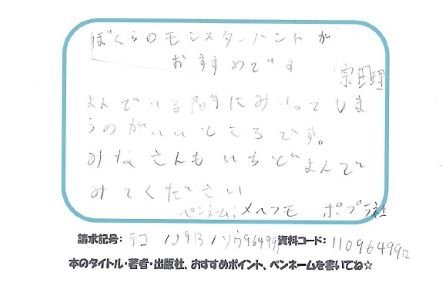 ぼくらのモンスターハントが
おすすめです
宗田理
よんでいる間にみいってしま
うのがいいところです。
みなさんもいちどよんで
みてください
ペンネーム:メルフモ ポプラ社
請求記号: 913 ソウ 資料コード:
本のタイトル・著者・出版社、おすすめポイント、ペンネームを書いてね☆